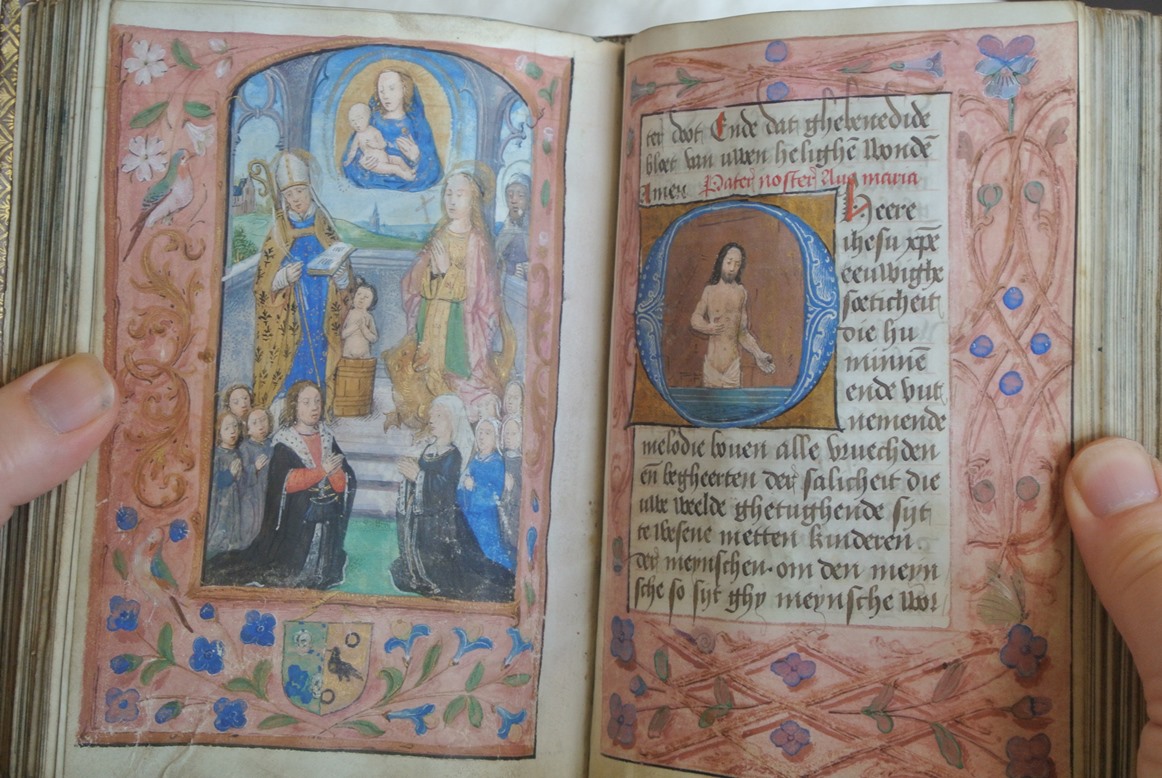 ter doot Ende dat ghebenedide
bloet van uwen helighē wondē
Amen Pater noster Aue maria
Heere
ihesu xpē
eeuwighe
soeticheit
die hu
minnē
ende vut
nemende
melodie bouen alle vruechden
eñ begheerten der salicheit die
uwe weelde ghetughende sijt
te wesene metten kinderen
der meynschen. om den meyn
sche so sijt ghy meynsche wor